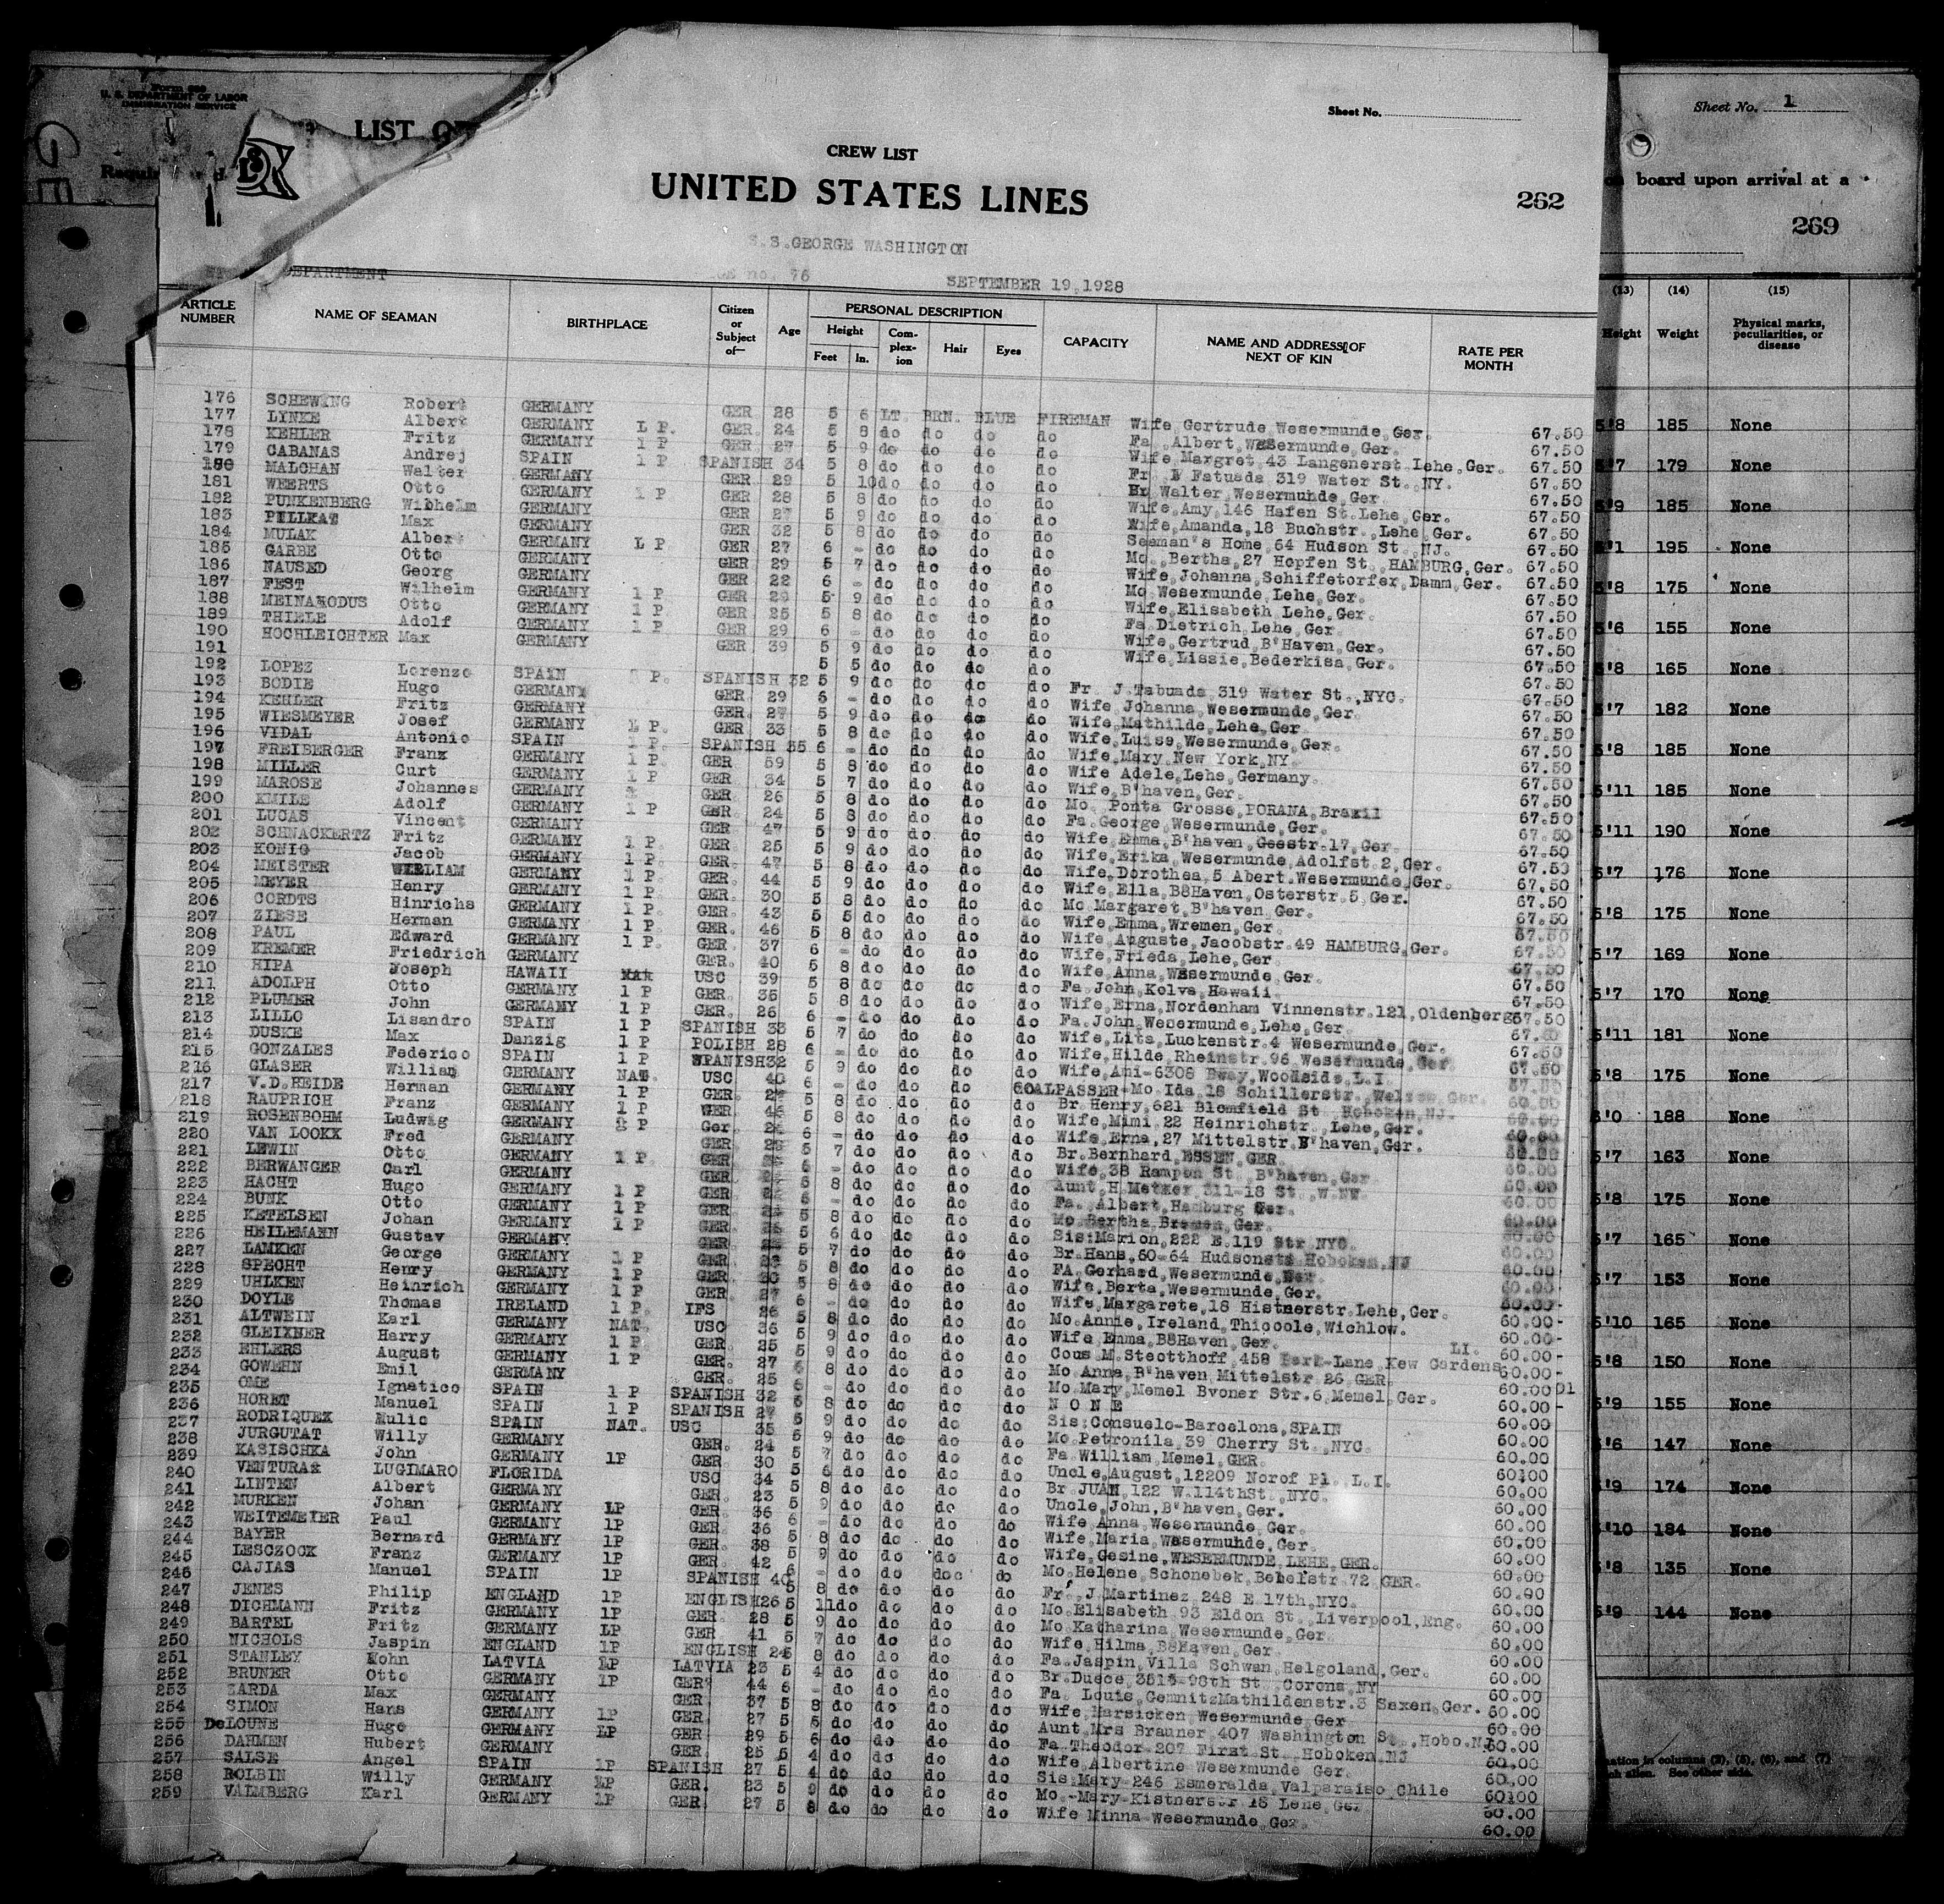 Form 680
U. S. DEPARTMENT OF LABOR
IMMIGRATION SERVICE
LIST OF
Sheet No.
CREW LIST
UNITED STATES LINES
262
S.S.GEORGE WASHINGTON
DEPARTMENT no. 76 SEPTEMBER 19,1928
ARTICLE NUMBER NAME OF SEAMAN BIRTHPLACE Citizen or Subject of— Age PERSONAL DESCRIPTION Height Feet In. Complexion Hair Eyes CAPACITY NAME AND ADDRESS OF NEXT OF KIN RATE PER MONTH
176 SCHEWING Robert GERMANY GER 28 5 6 LT. BRN. BLUE FIREMAN Wife, Gertrude, Wesermunde, Ger. 67.50
177 LINKE Albert GERMANY L P. GER. 24 5 8 do do do do Fa. Albert, Wesermunde, Ger. 67.50
178 KEHLER Fritz GERMANY 1 P GER. 27 5 9 do do do do Wife Margret, 43 Langenerst Lehe, Ger. 67.50
179 CABANAS Andrej SPAIN 1 P SPANISH 34 5 8 do do do do Fr. Fatuada 319 Water St. NY. 67.50
180 MALCHAN Walter GERMANY GER 29 5 10 do do do do Br Walter, Wesermunde, Ger. 67.50
181 WEERTS Otto GERMANY 1 P GER 28 5 8 do do do do Wife, Amy, 146 Hafen St. Lehe, Ger. 67.50
182 PUNKENBERG Wilhelm GERMANY GER 27 5 9 do do do do Wife, Amanda, 18 Buchstr., Lehe, Ger. 67.50
183 PILLKAT Max GERMANY GER 32 5 8 do do do do Seeman's Home, 64 Hudson St., NJ. 67.50
184 MULAK Albert GERMANY L P GER 27 6 - do do do do Mo., Bertha, 27 Hopfen St., HAMBURG, Ger. 67.50
185 GARBE Otto GERMANY GER 29 5 7 do do do do Wife, Johanna, Schiffetorfer, Damm, Ger. 67.50
186 NAUSED Georg GERMANY GER 22 6 - do do do do Mo Wesermunde, Lehe, Ger. 67.50
187 FEST Wilhelm GERMANY 1 P GER 29 5 9 do do do do Wife, Elisabeth, Lehe, Ger. 67.50
188 MEINAKODUS Otto GERMANY 1 P GER 25 5 8 do do do do Fa. Dietrich, Lehe, Ger. 67.50
189 THIELE Adolf GERMANY 1 P GER 29 6 - do do do do Wife, Gertrud, B'Haven, Ger. 67.50
190 HOCHLEICHTER Max GERMANY GER 39 5 9 do do do do Wife, Lissie, Bederkisa, Ger. 67.50
191 5 5 do do do do 67.50
192 LOPEZ Lorenzo SPAIN P. SPANISH 32 5 9 do do do do Fr. J. Tabuada, 319 Water St., NYC. 67.50
193 BODIE Hugo GERMANY GER. 29 6 - do do do do Wife, Johanna, Wesermunde, Ger. 67.50
194 KEHLER Fritz GERMANY GER. 27 5 9 do do do do Wife, Mathilde, Lehe, Ger. 67.50
195 WIESMEYER Josef GERMANY 1 P. GER 33 5 8 do do do do Wife, Luise, Wesermunde, Ger. 67.50
196 VIDAL Antonio SPAIN 1 P. SPANISH 35 6 - do do do do Wife, Mary, New York, NY. 67.50
197 FREIBERGER Franz GERMANY 1 P. GER 59 5 8 do do do do Wife Adele, Lehe, Germany. 67.50
198 MILLER Curt GERMANY 1 P GER 34 5 7 do do do do Wife, B'haven, Ger. 67.50
199 MAROSE Johannes GERMANY GER 26 5 8 do do do do Mo. Ponta Grosse, PORANA, Brazil 67.50
200 KMILE Adolf GERMANY 1 P GER. 24 5 8 do do do do Fa. George, Wesermunde, Ger. 67.50
201 LUCAS Vincent GERMANY GER 47 5 9 do do do do Wife Emma, B'haven, Geestr. 17, Ger. 67.50
202 SCHNACKERTZ Fritz GERMANY 1 P. GER. 25 5 9 do do do do Wife, Erika, Wesermunde, Adolfst. 2, Ger. 67.50
203 KONIG Jacob GERMANY 1 P. GER. 47 5 8 do do do do Wife, Dorothea, 5 Abert. Wesermunde, Ger. 67.50
204 MEISTER WILLIAM GERMANY 1 P. GER. 44 5 9 do do do do Wife, Ella, B8Haven, Osterstr. 5, Ger. 67.50
205 MEYER Henry GERMANY 1 P. GER. 30 5 8 do do do do Mo Margaret, B'haven, Ger. 67.50
206 CORDTS Hinrichs GERMANY 1 P. GER. 43 5 5 do do do do Wife, Emma, Wremen, Ger. 67.50
207 ZIESE Herman GERMANY 1 P. GER. 46 5 8 do do do do Wife, Auguste, Jacobstr. 49 HAMBURG, Ger. 67.50
208 PAUL Edward GERMANY 1 P. GER 37 6 - do do do do Wife, Frieda, Lehe, Ger. 67.50
209 KREMER Friedrich GERMANY GER. 40 5 8 do do do do Wife, Anna, Wesermunde, Ger. 67.50
210 HIPA Joseph HAWAII USC 39 5 8 do do do do Fa. John, Kolva, Hawaii. 67.50
211 ADOLPH Otto GERMANY 1 P GER. 35 5 8 do do do do Wife, Erna, Nordenham Vinnenstr. 121, Oldenberg 67.50
212 PLUMER John GERMANY 1 P GER. 26 6 - do do do do Fa. John, Wesermunde, Lehe, Ger. 67.50
213 LILLO Lisandro SPAIN 1 P SPANISH 33 5 7 do do do do Wife, Lita, Luckenstr. 4 Wesermunde, Ger. 67.50
214 DUSKE Max Danzig 1 P POLISH 28 6 - do do do do Wife, Hilde, Rheinstr. 96 Wesermunde, Ger 67.50
215 GONZALES Federico SPAIN 1 P SPANISH 32 5 9 do do do do Wife, Ani-6308 Bway, Woodside, L.I. 67.50
216 GLASER William GERMANY NAT. USC 40 6 - do do do COALPASSER-Mo. Ida, 18 Schillerstr. Ger. 60.00
217 V.D.HEIDE Herman GERMANY 1 P GER. 5 8 do do do do Br. Henry, 621 Blomfield St. Hoboken, NJ. 60.00
218 RAUPRICH Franz GERMANY 1 P GER 46 5 8 do do do do Wife, Mimi, 22 Heinrichstr., Lehe, Ger. 60.00
219 ROSENBOHM Ludwig GERMANY P Ger. 6 - do do do do Wife, Erna, 27 Mittelstr. B'haven, Ger. 60.00
220 VAN LOOKX Fred GERMANY GER 5 7 do do do do Br. Bernhard, ESSEN, GER. 60.00
221 LEWIN Otto GERMANY 1 P. GER 6 - do do do do Wife, 38 Rampen St. B'haven, Ger 60.00
222 BERWANGER Carl GERMANY GER 5 8 do do do do Aunt, H Metzer 311-18 St., W.NW. 60.00
223 HACHT Hugo GERMANY 1 P GER 6 - do do do do Fa. Albert, Hamburg Ger. 60.00
224 BUNK Otto GERMANY 1 P GER. 5 8 do do do do Mo. Bertha Bremen, Ger. 60.00
225 KETELSEN Johan GERMANY 1 P GER. 5 6 do do do do Sis: Marion, 222 E. 119 Str NYC. 60.00
226 HEILEMANN Gustav GERMANY GER 5 7 do do do do Br. Hans, 60-64 Hudsonstr Hoboken, NJ 60.00
227 LAMKEN George GERMANY 1 P GER. 5 8 do do do do FA. Gerhard, Wesermunde, 60.00
228 SPECHT Henry GERMANY 1 P GER. 30 5 8 do do do do Wife, Berta, Wesermunde, Ger. 60.00
229 UHLKEN Heinrich GERMANY 1 P GER. 27 6 - do do do do Wife, Margarete, 18 Histnerstr. Lehe, Ger. 60.00-
230 DOYLE Thomas IRELAND 1 P. IFS 26 5 8 do do do do Mo. Annie, Ireland, Thicoole, Wichlow. 60.00-
231 ALTWEIN Karl GERMANY NAT. USC 36 5 9 do do do do Wife Emma, B8Haven, Ger. 60.00-
232 GLEIXNER Harry GERMANY 1 P. GER. 25 5 9 do do do do Cous M. Steotthoff, 458 -Lane, Kew Gardens LI. 60.00-
233 EHLERS August GERMANY 1 P GER. 27 5 8 do do do do Mo Anna, B'haven, Mittelstr 26 GER. 60.00-
234 GOWEHN Emil GERMANY GER. 25 6 - do do do do Mo. Mary, Memel Bvoner Str. 6, Memel, Ger. 60.00 D1
235 OME Ignatico SPAIN 1 P SPANISH 32 5 8 do do do do N O N E 60.00-
236 HORET Manuel SPAIN 1 P SPANISH 27 5 9 do do do do Sis: Consuelo-Barcelona, SPAIN 60.00
237 RODRIQUEZ Eulic SPAIN NAT. USC 35 5 9 do do do do Mo. Petronila, 39 Cherry St., NYC. 60.00
238 JURGUTAT Willy GERMANY GER. 24 5 7 do do do do Fa William, Memel, GER. 60.00
239 KASISCHKA John GERMANY 1P GER 30 5 6 do do do do Uncle, August, 12209 Norof Pl. L.I. 60100
240 VENTURA LUGIMARO FLORIDA USC 34 5 8 do do do do Br. JUAN, 122 W.114thSt., NYC. 60.00
241 LINTEN Albert GERMANY GER. 23 5 9 do do do do Uncle, John, B'haven, Ger. 60.00
242 MURKEN Johan GERMANY 1P GER. 36 6 - do do do do Wife Anna, Wesermunde, Ger. 60.00
243 WEITEMEIER Paul GERMANY 1P GER. 36 5 8 do do do do Wife, Maria, Wesermunde, Ger. 60.00
244 BAYER Bernard GERMANY 1P GER. 38 5 9 do do do do Wife, Gesine, WESERMUNDE, LEHE, GER. 60.00
245 LESCZOCK Franz GERMANY 1P GER. 42 6 - do do doc do Mo. Helene, Schonebek, Bebelstr. 72 GER. 60.00
246 CAJIAS Manuel SPAIN 1P SPANISH 40 5 8 do do do do Fr. J. Martinez 248 E.17th, NYC. 60.00
247 JENES Philip ENGLAND 1P ENGLISH 26 5 11do do do do Mo. Elisabeth 93 Eldon St., Liverpool, Eng. 60.00
248 DICHMANN Fritz GERMANY 1P GER. 28 5 9 do do do do Mo. Katharina Wesermunde, Ger. 60.00
249 BARTEL Fritz GERMANY LP GER 41 5 7 do do do do Wife, Hilma, B8Haven, Ger. 60.00
250 NICHOLS Jaspin ENGLAND 1P ENGLISH 24 5 8 do do do do Fa. Jaspin, Villa Schwan, Helgoland, Ger. 60.00
251 STANLEY John LATVIA 1P LATVIA 23 5 4 do do do do Br. Duece, 3515-98th St. Corona, NY 60.00
252 BRUNER Otto GERMANY 1P GER. 44 6 - do do do do Fa. Louis, CemnitzMathildenstr. 3 Saxen, Ger. 60.00
253 ZARDA Max GERMANY GER 37 5 8 do do do do Wife, Marsicken Wesermunde Ger 60.00
254 SIMON Hans GERMANY 1P GER. 27 5 5 do do do do Aunt Mrs Brauner 407 Washington St., Hobo. NJ 60.00
255 DeLOUNE Hugo GERMANY LP GER 29 5 6 do do do do Fa. Theodor-207 First St. Hoboken, NJ 60.00
256 DAHMEN Hubert GERMANY GER 25 5 4 do do do do Wife Albertine Wesermunde Ger. 60.00
257 SALSE Angel SPAIN 1P SPANISH 27 5 4 do do do do Sis. Mary-246 Esmeralda, Valparaiso, Chile 60100
258 ROLBIN Willy GERMANY 1P GER. 23 5 9 do do do do Mo.-Mary-Kistnerstr 18 Lehe, Ger 60.00
259 VALMBERG Karl GERMANY 1P GER. 27 5 8 do do do do Wife Minna-Wesermunde, Ger. 60.00
Sheet No. 1
on board upon arrival at a
269
(13) (14) (15)
Height Weight Physical marks, peculiarities, or disease
5'8 185 None
5'7 179 None
5'9 185 None
5'1 195 None
5'8 175 None
5'6 155 None
5'8 165 None
5'7 182 None
5'8 185 None
5'11 185 None
5'11 190 None
5'7 176 None
5'8 175 None
5'7 169 None
5'7 170 None
5'11 181 None
5'8 175 None
6'0 188 None
5'7 163 None
5'8 175 None
5'7 165 None
5'7 153 None
5'10 165 None
5'8 150 None
5'9 155 None
5'6 147 None
5'9 174 None
5'10 184 None
5'8 135 None
5'9 144 None
in columns (3), (5), (6), and (7)
each alien. See other side.